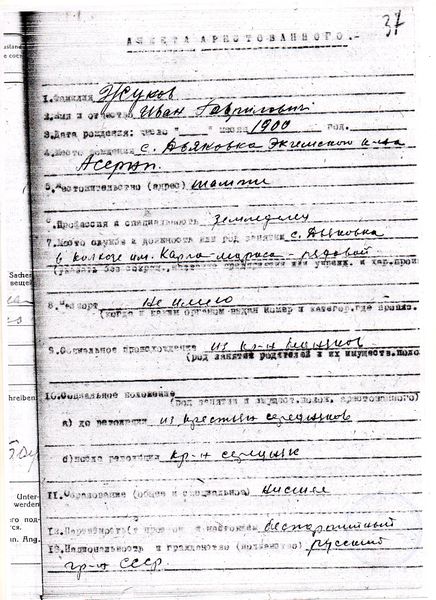 37
АНКЕТА АРЕСТОВАННОГО.-
1.Фамилия Жуков
2.Имя и отчество Иван Гаврилович
3.Дата рождения: число "____" месяц 1900 год.
4.Место рождения с. Дьяковка
5.Местожительство (адрес)
6.Профессия и специальность земледелец
7.Место службы и должность или род занятий с. Дьяковка
в колхозе им. Карла-Маркса - рядовой
8.Паспорт Не имею
(когда и каким органом выдан номер и категор. где пропис.
9.Социальное происхождение из кр-н
(род занятий родителей и их имуществ. поло
10.Социальное положение
(род занятий и имущест. полож. арестованного)
а) до революции из крестьян середняков
б)после революции кр-н середняк
11.Образование (общее и специальное) низшее
12.Партийность(в прошлом и настоящем) беспартийный
13.Национальность и гражданство (подданство) русский
гр-н СССР
Sachen
вещей
hreiben
Unter-
werden
ого под-
тся.
un. Ang.